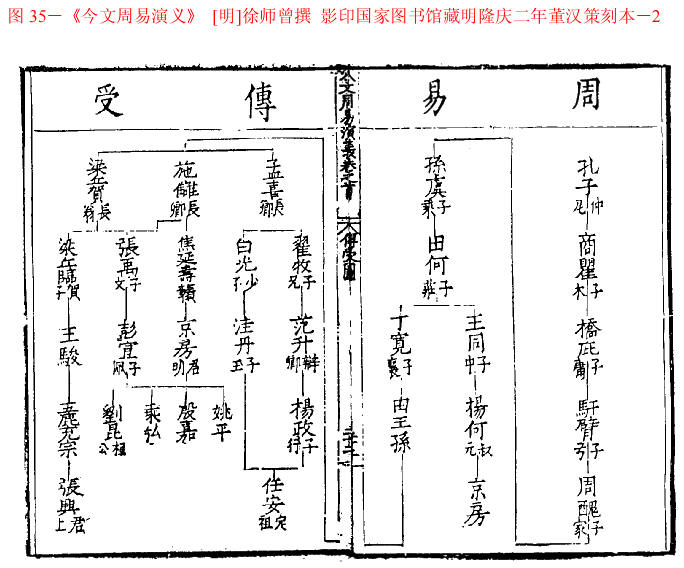 图 35－《今文周易演义》 [明]徐师曾撰 影印国家图书馆藏明隆庆二年董汉策刻本－2
周易
傳受
孔子
仲尼
商瞿
子木
橋庇
子庸
馯臂
子弓
周醜
子家
孫虞
子乘
田何
子莊
王同
子中
楊何
叔元
京房
丁寬
子襄
田王孫
今文周易演義卷之首
孟喜
長卿
施讎
長卿
梁丘賀
長翁
翟牧
子兄
范升
辯卿
楊政
子行
白光
少子
洼丹
子玉
任安
定祖
焦延壽
贛
京房
君明
殷嘉
姚平
乘弘
張禹
子文
彭宣
子佩
劉昆
桓公
梁丘臨
賀子
王駿
張興
君上